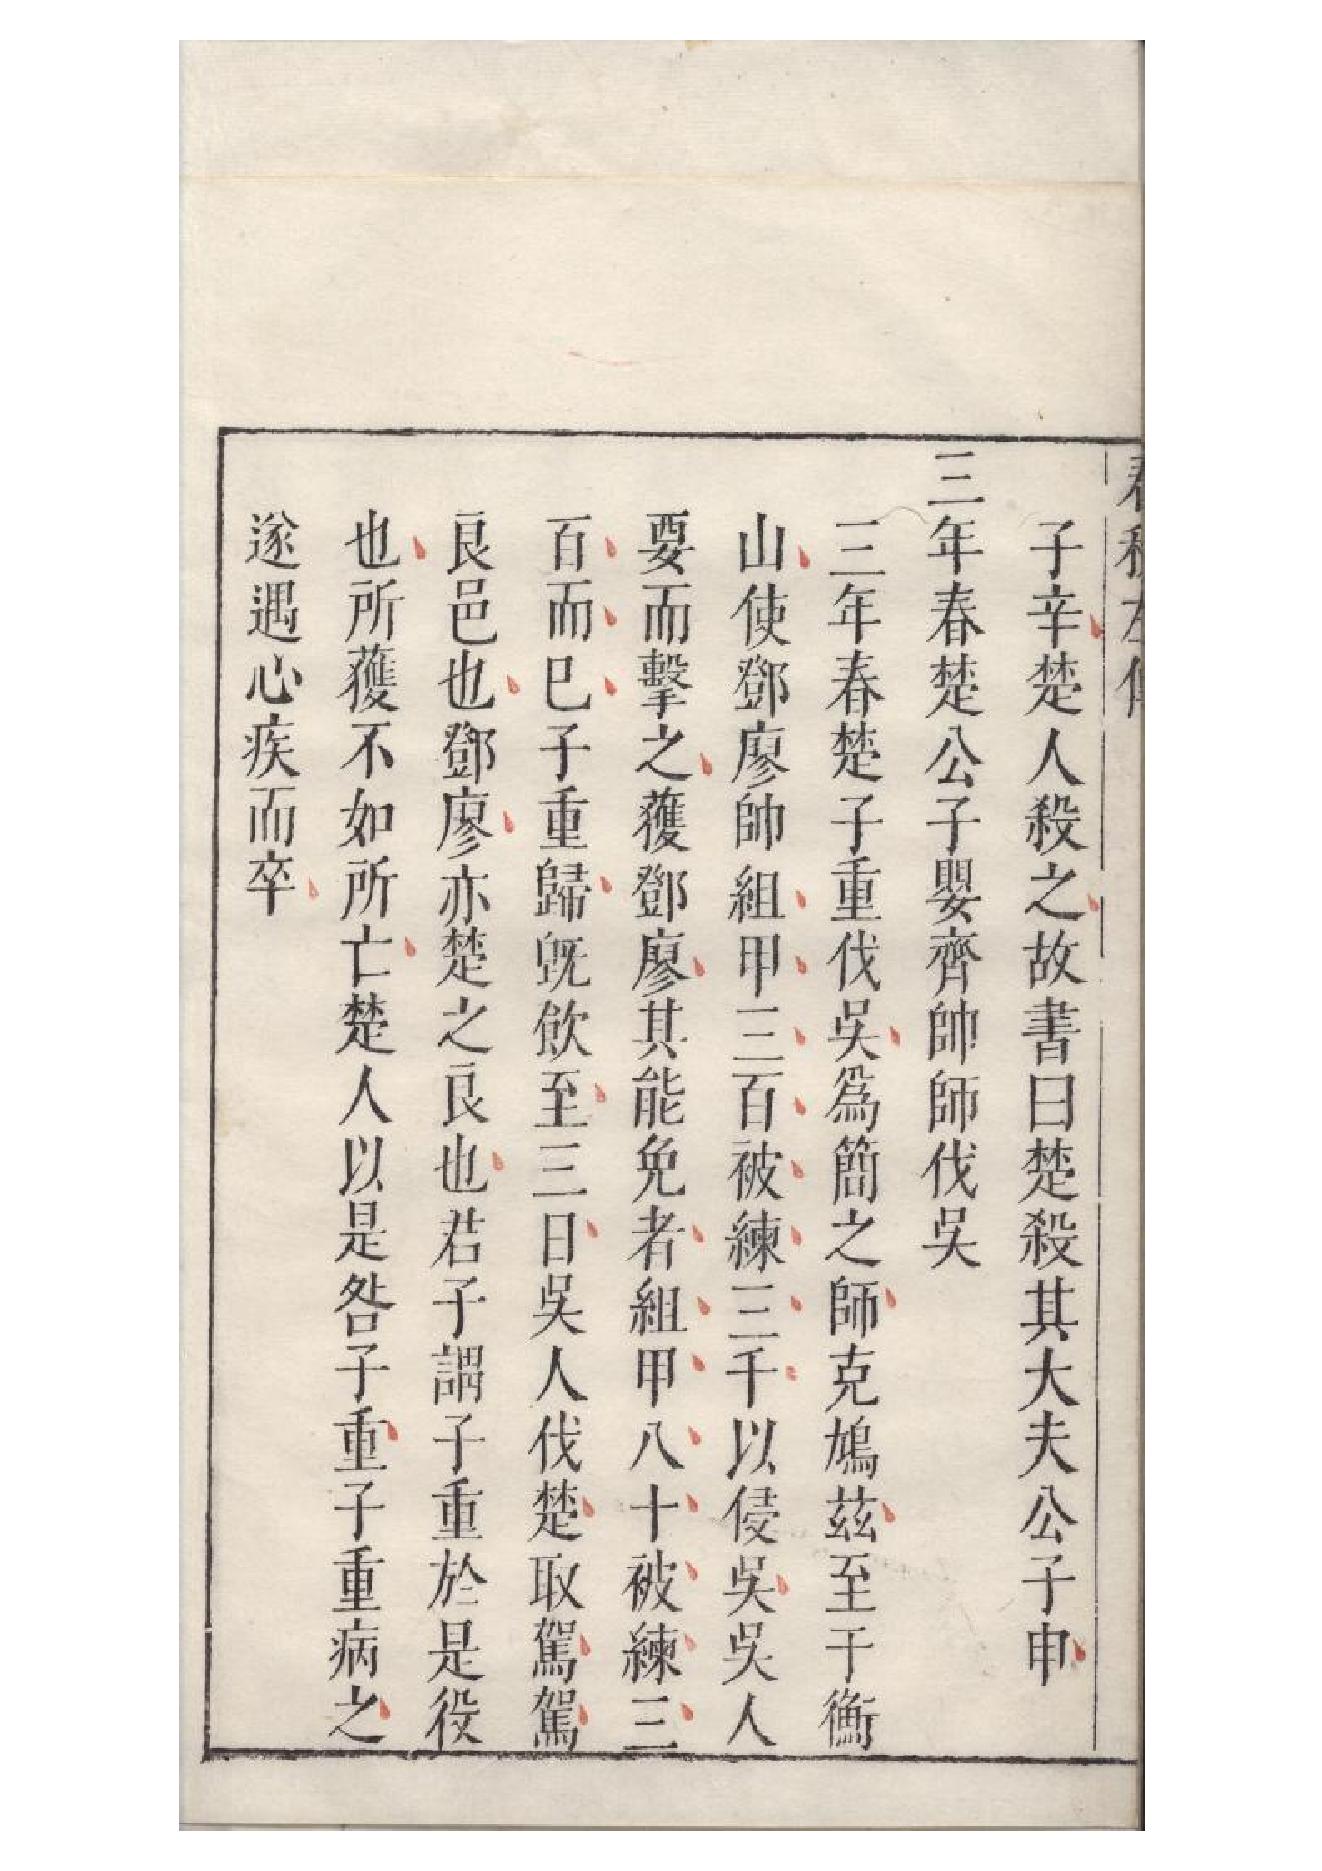 春秋左傳
子辛楚人殺之故書曰楚殺其大夫公子申
三年春楚公子嬰齊帥師伐吳
三年春楚子重伐吳爲簡之師克鳩茲至于衡
山使鄧廖帥組甲三百被練三千以侵吳吳人
要而擊之獲鄧廖其能免者組甲八十被練三
百而已子重歸旣飲至三日吳人伐楚取駕駕
良邑也鄧廖亦楚之良也君子謂子重於是役
也所獲不如所亡楚人以是咎子重子重病之
遂遇心疾而卒